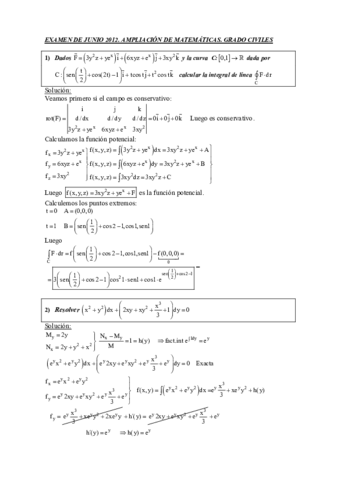 EXAMEN DE JUNIO 2012. AMPLIACIÓN DE MATEMÁTICAS. GRADO CIVILES
1) Dados F = (3y²z + yeˣ) i + (6xyz + eˣ) j + 3xy²k y la curva C:[0,1] → ℝ dada por
C : (sen(t/2) + cos(2t) − 1) i + tcost j + t² cost k calcular la integral de línea ∫_C F · dr
Solución:
Veamos primero si el campo es conservativo:
i j k
rot(F) = d/dx d/dy d/dz = 0i + 0j + 0k Luego es conservativo.
3y²z + yeˣ 6xyz + eˣ 3xy²
Calculamos la función potencial:
fₓ = 3y²z + yeˣ f(x,y,z) = ∫(3y²z + yeˣ)dx = 3xy²z + yeˣ + A
f_y = 6xyz + eˣ f(x,y,z) = ∫(6xyz + eˣ)dy = 3xy²z + yeˣ + B
f_z = 3xy² f(x,y,z) = ∫3xy²dz = 3xy²z + C
Luego f(x,y,z) = 3xy²z + yeˣ + F es la función potencial.
Calculamos los puntos extremos:
t = 0 A = (0,0,0)
t = 1 B = (sen(1/2) + cos2 − 1, cos1, sen1)
Luego
∫_C F · dr = f(sen(1/2) + cos2 − 1, cos1, sen1) − f(0,0,0) =
0
= 3(sen(1/2) + cos2 − 1)cos²1 · sen1 + cos1 · e^(sen(1/2) + cos2 − 1)
2) Resolver (x² + y²)dx + (2xy + xy² + x³/3 + 1)dy = 0
Solución:
M_y = 2y
Nₓ = 2y + y² + x² (Nₓ − M_y)/M = 1 = h(y) ⇒ fact.int e^(∫1dy) = e^y
(e^y x² + e^y y²)dx + (e^y 2xy + e^y xy² + e^y x³/3 + e^y)dy = 0 Exacta
fₓ = e^y x² + e^y y²
f_y = e^y 2xy + e^y xy² + e^y x³/3 + e^y f(x,y) = ∫(e^y x² + e^y y²)dx = e^y x³/3 + xe^y y² + h(y)
f_y = e^y x³/3 + xe^y y² + 2xe^y y + h'(y) = e^y 2xy + e^y xy² + e^y x³/3 + e^y
h'(y) = e^y ⇒ h(y) = e^y